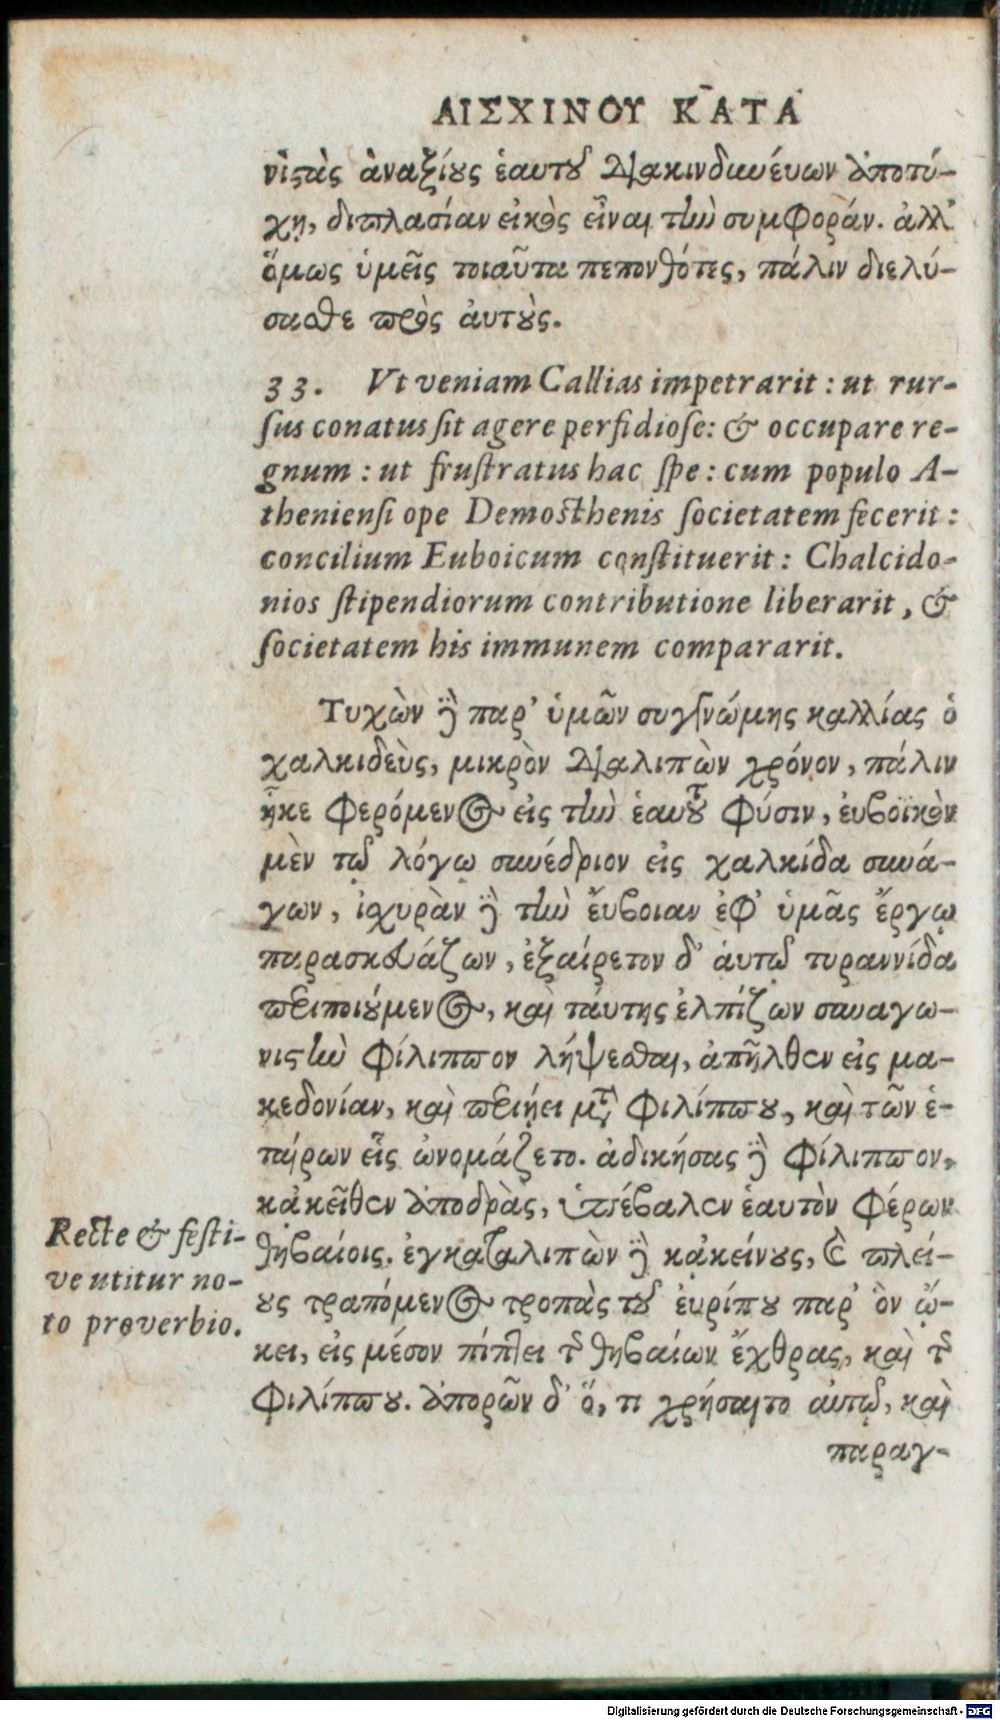 ΑΙΣΧΙΝΟΥ ΚΑΤΑ
νιστὰς ἀναξίους ἑαυτοῦ διακινδυνεύων ἀποτύ-
χῃ, διπλασίαν εἰκὸς εἶναι τὴν συμφοράν. ἀλλ'
ὅμως ὑμεῖς τοιαῦτα πεπονθότες, πάλιν διελύ-
σασθε πρὸς ἀυτοὺς.
33. Vt veniam Callias impetrarit: ut rur-
sus conatus sit agere perfidiose: & occupare re-
gnum: ut frustratus hac spe: cum populo A-
theniensi ope Demosthenis societatem fecerit:
concilium Euboicum constituerit: Chalcido-
nios stipendiorum contributione liberarit, &
societatem his immunem compararit.
Τυχὼν δὲ παρ' ὑμῶν συγγνώμης καλλίας ὁ
χαλκιδεὺς, μικρὸν διαλιπὼν χρόνον, πάλιν
ἧκε φερόμενος εἰς τὴν ἑαυτοῦ φύσιν, ἐυβοϊκὸν
μὲν τῷ λόγῳ συνέδριον εἰς χαλκίδα συνά-
γων, ἰχυρὰν δὲ τὴν ἔυβοιαν ἐφ' ὑμᾶς ἔργῳ
παρασκευάζων, ἐξαίρετον δ' ἁυτῷ τυραννίδα
περιποιούμενος, καὶ ταύτης ἐλπίζων συναγω-
νιστὴν Φίλιππον λήψεσθαι, ἀπῆλθεν εἰς μα-
κεδονίαν, καὶ περιῄει μετὰ Φιλίππου, καὶ τῶν ἑ-
ταίρων εἷς ὠνομάζετο. ἀδικήσας δὲ Φίλιππον,
κἀκεῖθεν ἀποδρὰς, ὑπέβαλεν ἑαυτὸν φέρων
θηβαίοις. ἐγκαταλιπὼν δὲ κἀκείνους, καὶ πλεί-
ους τραπόμενος τροπὰς τοῦ ἐυρίπου παρ' ὃν ᾤ-
κει, εἰς μέσον πίπτει τῆς θηβαίων ἔχθρας, καὶ τῆς
Φιλίππου. ἀπορῶν δ' ὅ, τι χρήσαιτο αὑτῷ, καὶ
παραγ-
Recte & festi-
ve utitur no-
to proverbio.
Digitalisierung gefördert durch die Deutsche Forschungsgemeinschaft - DFG